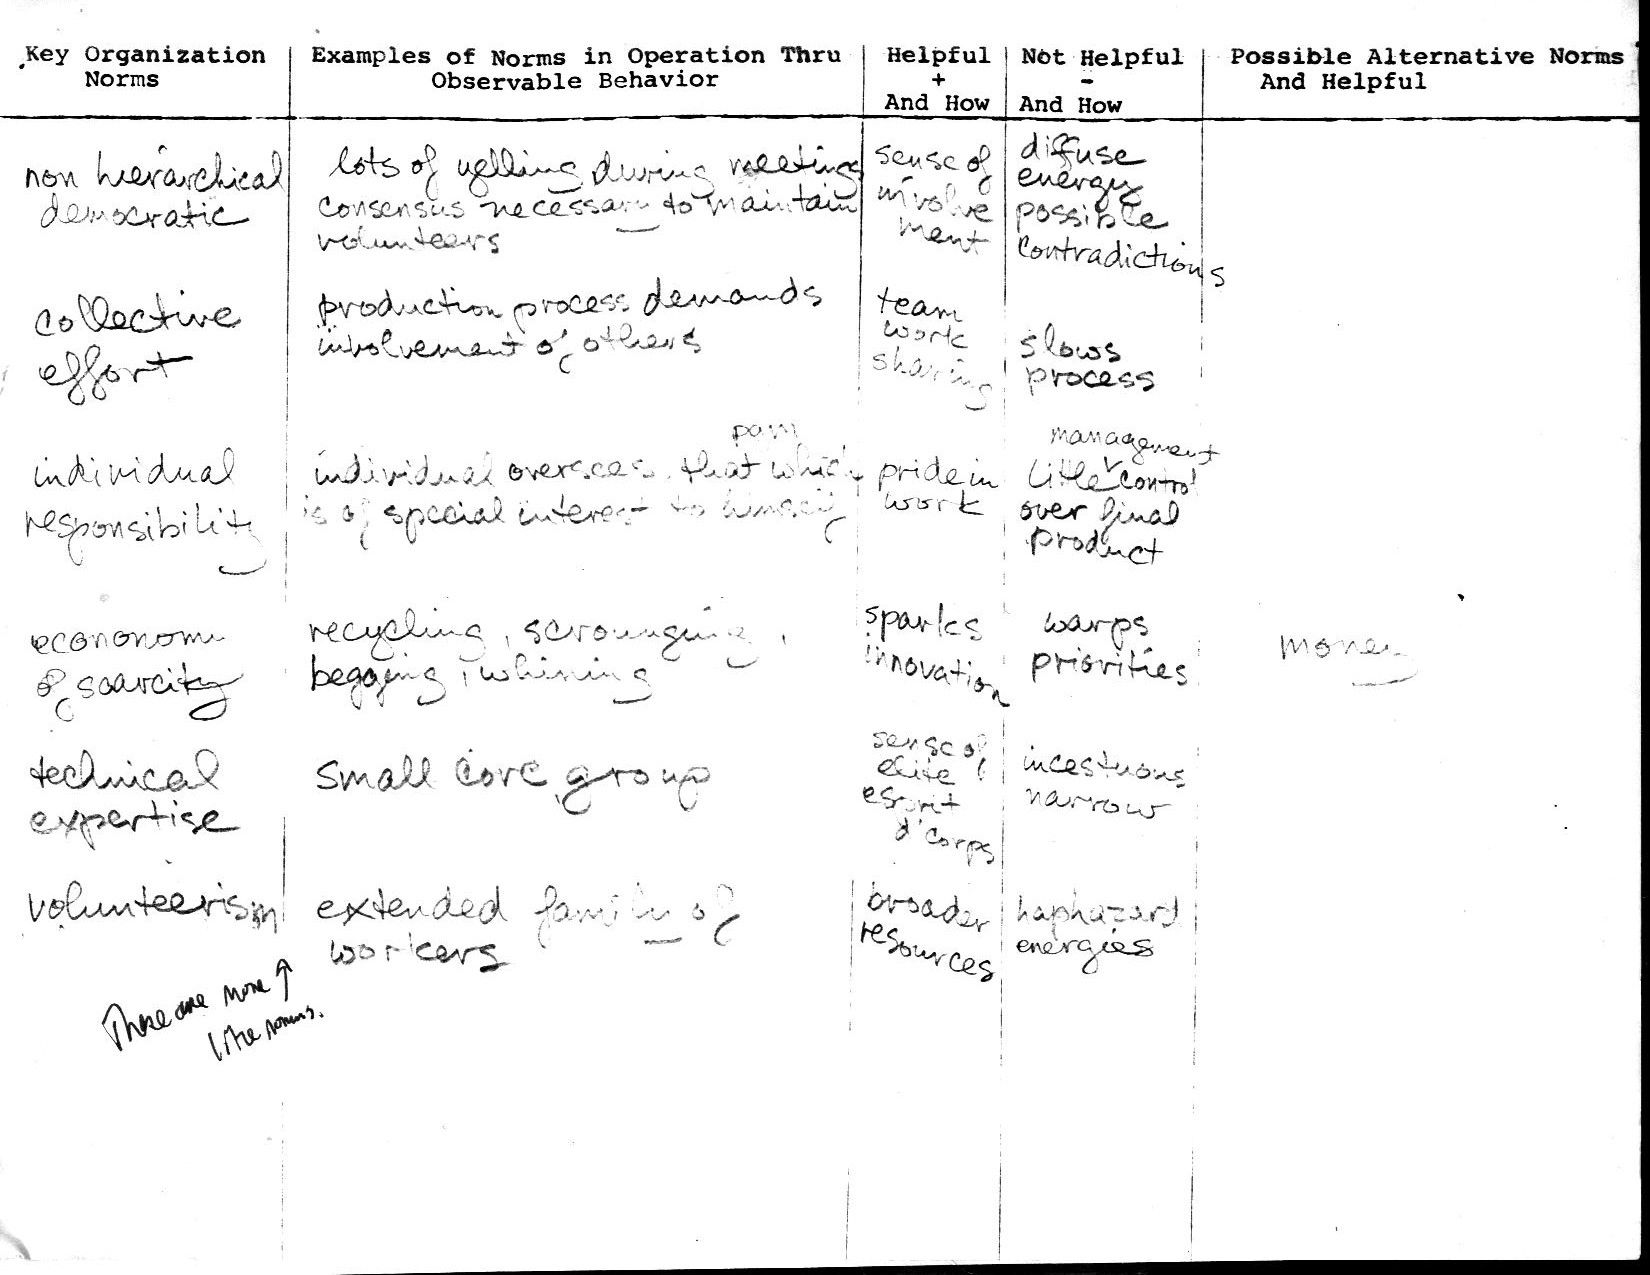 Key Organization Norms
Examples of Norms in Operation Thru Observable Behavior
Helpful + And How
Not Helpful - And How
Possible Alternative Norms And Helpful
non hierarchical
democratic
lots of yelling during meetings
consensus necessary to maintain
volunteers
sense of
involve
ment
diffuse
energy
possible
contradictions
collective
effort
production process demands
involvement of others
team
work
sharing
slows
process
individual
responsibility
part
individual oversees that which
is of special interest to himself
pride in
work
management
little control
over final
product
econonomy
of scarcity
recycling, scrounging,
begging, whining
sparks
innovation
warps
priorities
money
technical
expertise
small core group
sense of
elite
esprit
d'corps
incestuous
narrow
volunteerism
extended family of
workers
broader
resources
haphazard
energies
These are more
like norms.